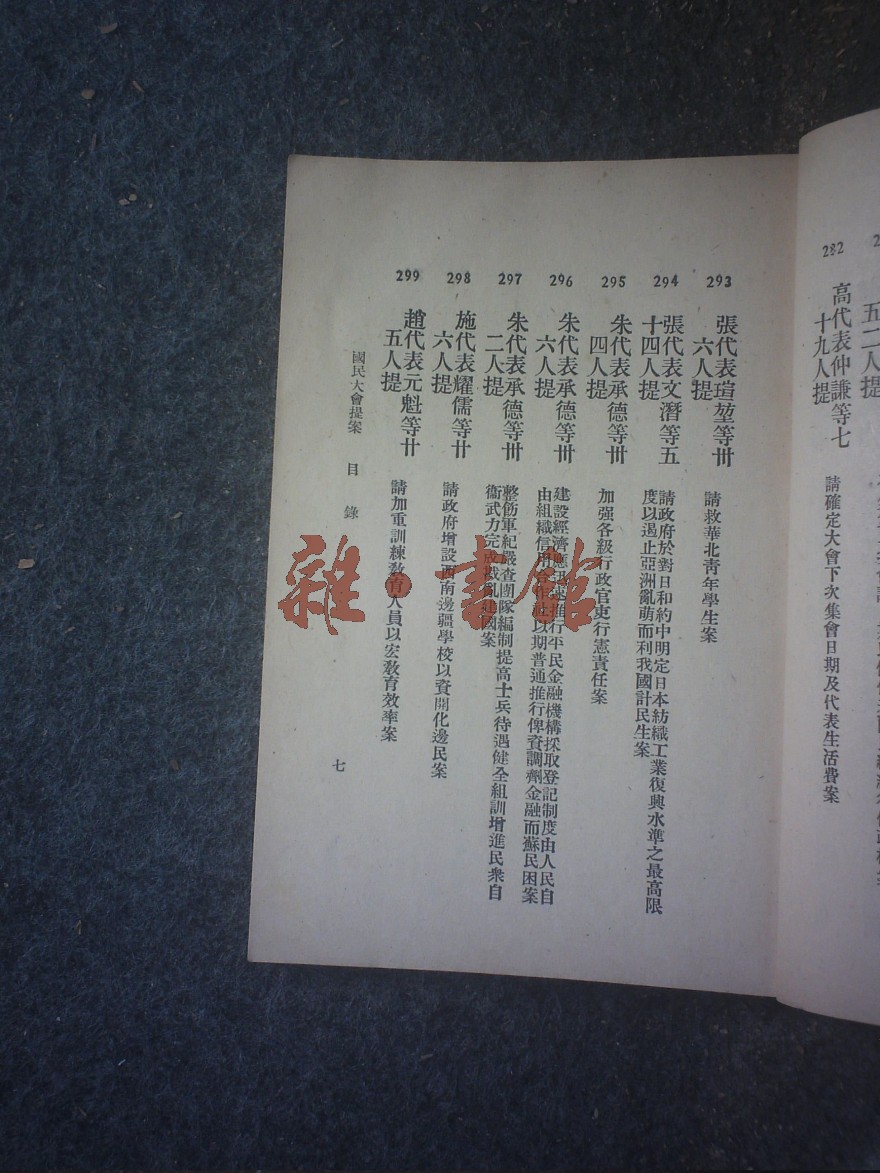 282
高代表仲謙等七
十九人提
請確定大會下次集會日期及代表生活費案
五二人提
293
張代表瑄堃等卅
六人提
請救華北靑年學生案
294
張代表文濳等五
十四人提
請政府於對日和約中明定日本紡織工業復興水準之最高限
度以遏止亞洲亂萌而利我國計民生案
295
朱代表承德等卅
四人提
加强各級行政官吏行憲責任案
296
朱代表承德等卅
六人提
建設經濟應迅速推行平民金融機構採取登記制度由人民自
由組織信用合作社以期普通推行俾資調劑金融而蘇民困案
297
朱代表承德等卅
二人提
整飭軍紀嚴查團隊編制提高士兵待遇健全組訓增進民衆自
衞武力完成戡亂建國案
298
施代表耀儒等廿
六人提
請政府增設西南邊疆學校以資開化邊民案
299
趙代表元魁等廿
五人提
請加重訓練敎育人員以宏敎育效率案
國民大會提案 目錄
七
雜·書館